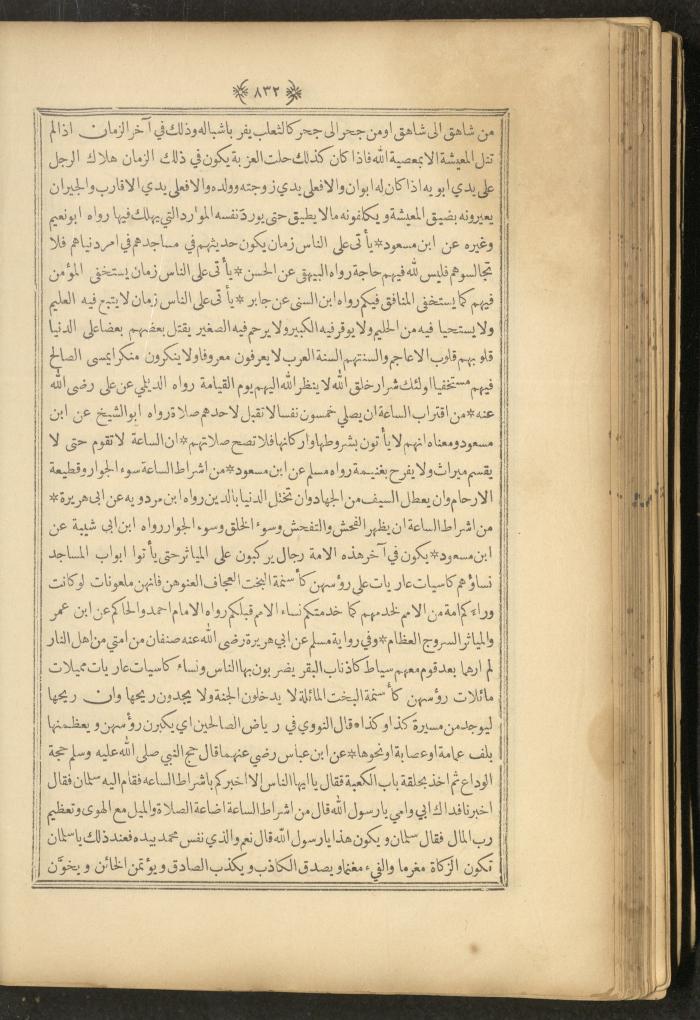 ٨٣٢
من شاهق الى شاهق او من جحر الى جحر كالثعلب يفر باشباله وذلك في آخر الزمان اذا لم
تنل المعيشة الا بمعصية الله فاذا كان كذلك حلت العزبة يكون في ذلك الزمان هلاك الرجل
على يدي ابويه اذا كان له ابوان والا فعلى يدي زوجته وولده والا فعلى يدي الاقارب والجيران
يعيرونه بضيق المعيشة ويكلفونه ما لا يطيق حتى يورد نفسه الموارد التي يهلك فيها رواه ابو نعيم
وغيره عن ابن مسعود * يأتى على الناس زمان يكون حديثهم في مساجدهم في امر دنياهم فلا
تجالسوهم فليس لله فيهم حاجة رواه البيهقي عن الحسن * يأتى على الناس زمان يستخفى المؤمن
فيهم كما يستخفى المنافق فيكم رواه ابن السنى عن جابر * يأتى على الناس زمان لا يتبع فيه العليم
ولا يستحيا فيه من الحليم ولا يوقر فيه الكبير ولا يرحم فيه الصغير يقتل بعضهم بعضا على الدنيا
قلوبهم قلوب الاعاجم والسنتهم السنة العرب لا يعرفون معروفا ولا ينكرون منكرا يمسى الصالح
فيهم مستخفيا اولئك شرار خلق الله لا ينظر الله اليهم يوم القيامة رواه الديلي عن على رضى الله
عنه * من اقتراب الساعة ان يصلي خمسون نفسا لا تقبل لاحدهم صلاة رواه ابو الشيخ عن ابن
مسعود ومعناه انهم لا يأتون بشروطها واركانها فلا تصح صلاتهم * ان الساعة لا تقوم حتى لا
يقسم ميراث ولا يفرح بغنيمة رواه مسلم عن ابن مسعود * من اشراط الساعة سوء الجوار وقطيعة
الارحام وان يعطل السيف من الجهاد وان تختل الدنيا بالدين رواه ابن مردويه عن ابى هريرة *
من اشراط الساعة ان يظهر الفحش والتفحش وسوء الخلق وسوء الجوار رواه ابن ابى شيبة عن
ابن مسعود * يكون في آخر هذه الامة رجال يركبون على المياثر حتى يأتوا ابواب المساجد
نساؤهم كاسيات عاريات على رؤسهن كأسنمة البخت العجاف العنوهن فانهن ملعونات لو كانت
وراءكم امة من الامم لخدمهم كما خدمتكم نساء الامم قبلكم رواه الامام احمد والحاكم عن ابن عمر
والمياثر السروج العظام * وفي رواية مسلم عن ابي هريرة رضى الله عنه صنفان من امتي من اهل النار
لم ارها بعد قوم معهم سياط كاذناب البقر يضربون بها الناس ونساء كاسيات عاريات مميلات
مائلات رؤسهن كأسنمة البخت المائلة لا يدخلون الجنة ولا يجدون ريحها وان ريحها
ليوجد من مسيرة كذا وكذا * قال النووي في رياض الصالحين اي يكبرن رؤسهن ويعظمنها
بلف عمامة او عصابة او نحوها * عن ابن عباس رضي عنهما قال حج النبي صلى الله عليه وسلم حجة
الوداع ثم اخذ بحلقة باب الكعبة فقال يا ايها الناس الا اخبركم باشراط الساعه فقام اليه سلمان فقال
اخبرنا فداك ابي وامي يا رسول الله قال من اشراط الساعة اضاعة الصلاة والميل مع الهوى وتعظيم
رب المال فقال سلمان ويكون هذا يا رسول الله قال نعم والذي نفس محمد بيده فعند ذلك يا سلمان
تكون الزكاة مغرما والفيء مغنما ويصدق الكاذب ويكذب الصادق ويؤتمن الخائن ويخوَّن